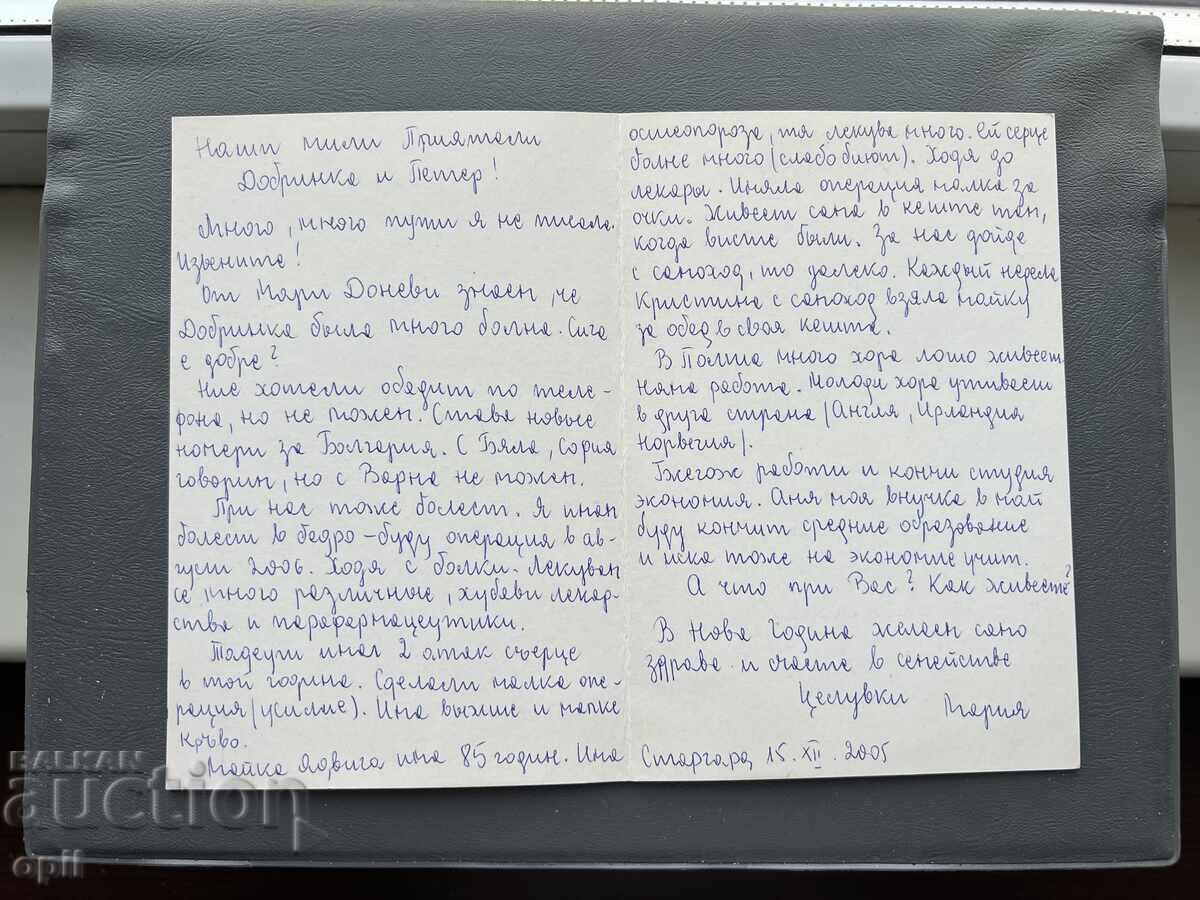 Наши мили Приятели
Добринка и Петер!
Много, много пути я не писала.
Извените!
От Мари Доневи знаем, че
Добринка была много болна. Сига
е добре?
Ние хотели обядит по теле-
фона, но не можем. Става новые
номери за Болгария. С Бяла, София
говорим, но с Варна не можем.
При нас тоже болест. Я имам
болести в бедро - буду операция в ав-
густ 2006. Ходя с болки. Лекувам
се много различные, хубави лекар-
ства и парафармацеутики.
Тадеуш имал 2 атак сьерце
в той година. Сделали малка опе-
рация (усилие). Има выжше и мапке
кръво.
Майка Ядвига има 85 годин. Има
остеопороза, тя лекува много. Ей серце
болне много (слабо биют). Ходя до
лекары. Имяла операция малка за
очки. Живеет сама в кеште там,
когда висте были. За нас дойде
с самоход, то далеко. Каждый недела
Кристина с самоход взяла майку
за обед в своя кешта.
В Полша много хора лошо живеет
няма работа. Молоди хора утиваеш
в друга страна (Англя, Ирландия
Норвегия).
Гжегож работи и кончи студия
экономия. Аня моя внучка в май
буду кончит средние образование
и иска тоже на экономие учит.
А что при Вас? Как живете?
В Нова Година желаем само
здраве и счастe в семействе
Целувки
Мария
Старгард 15. XII. 2005
BALKAN
auction
opll